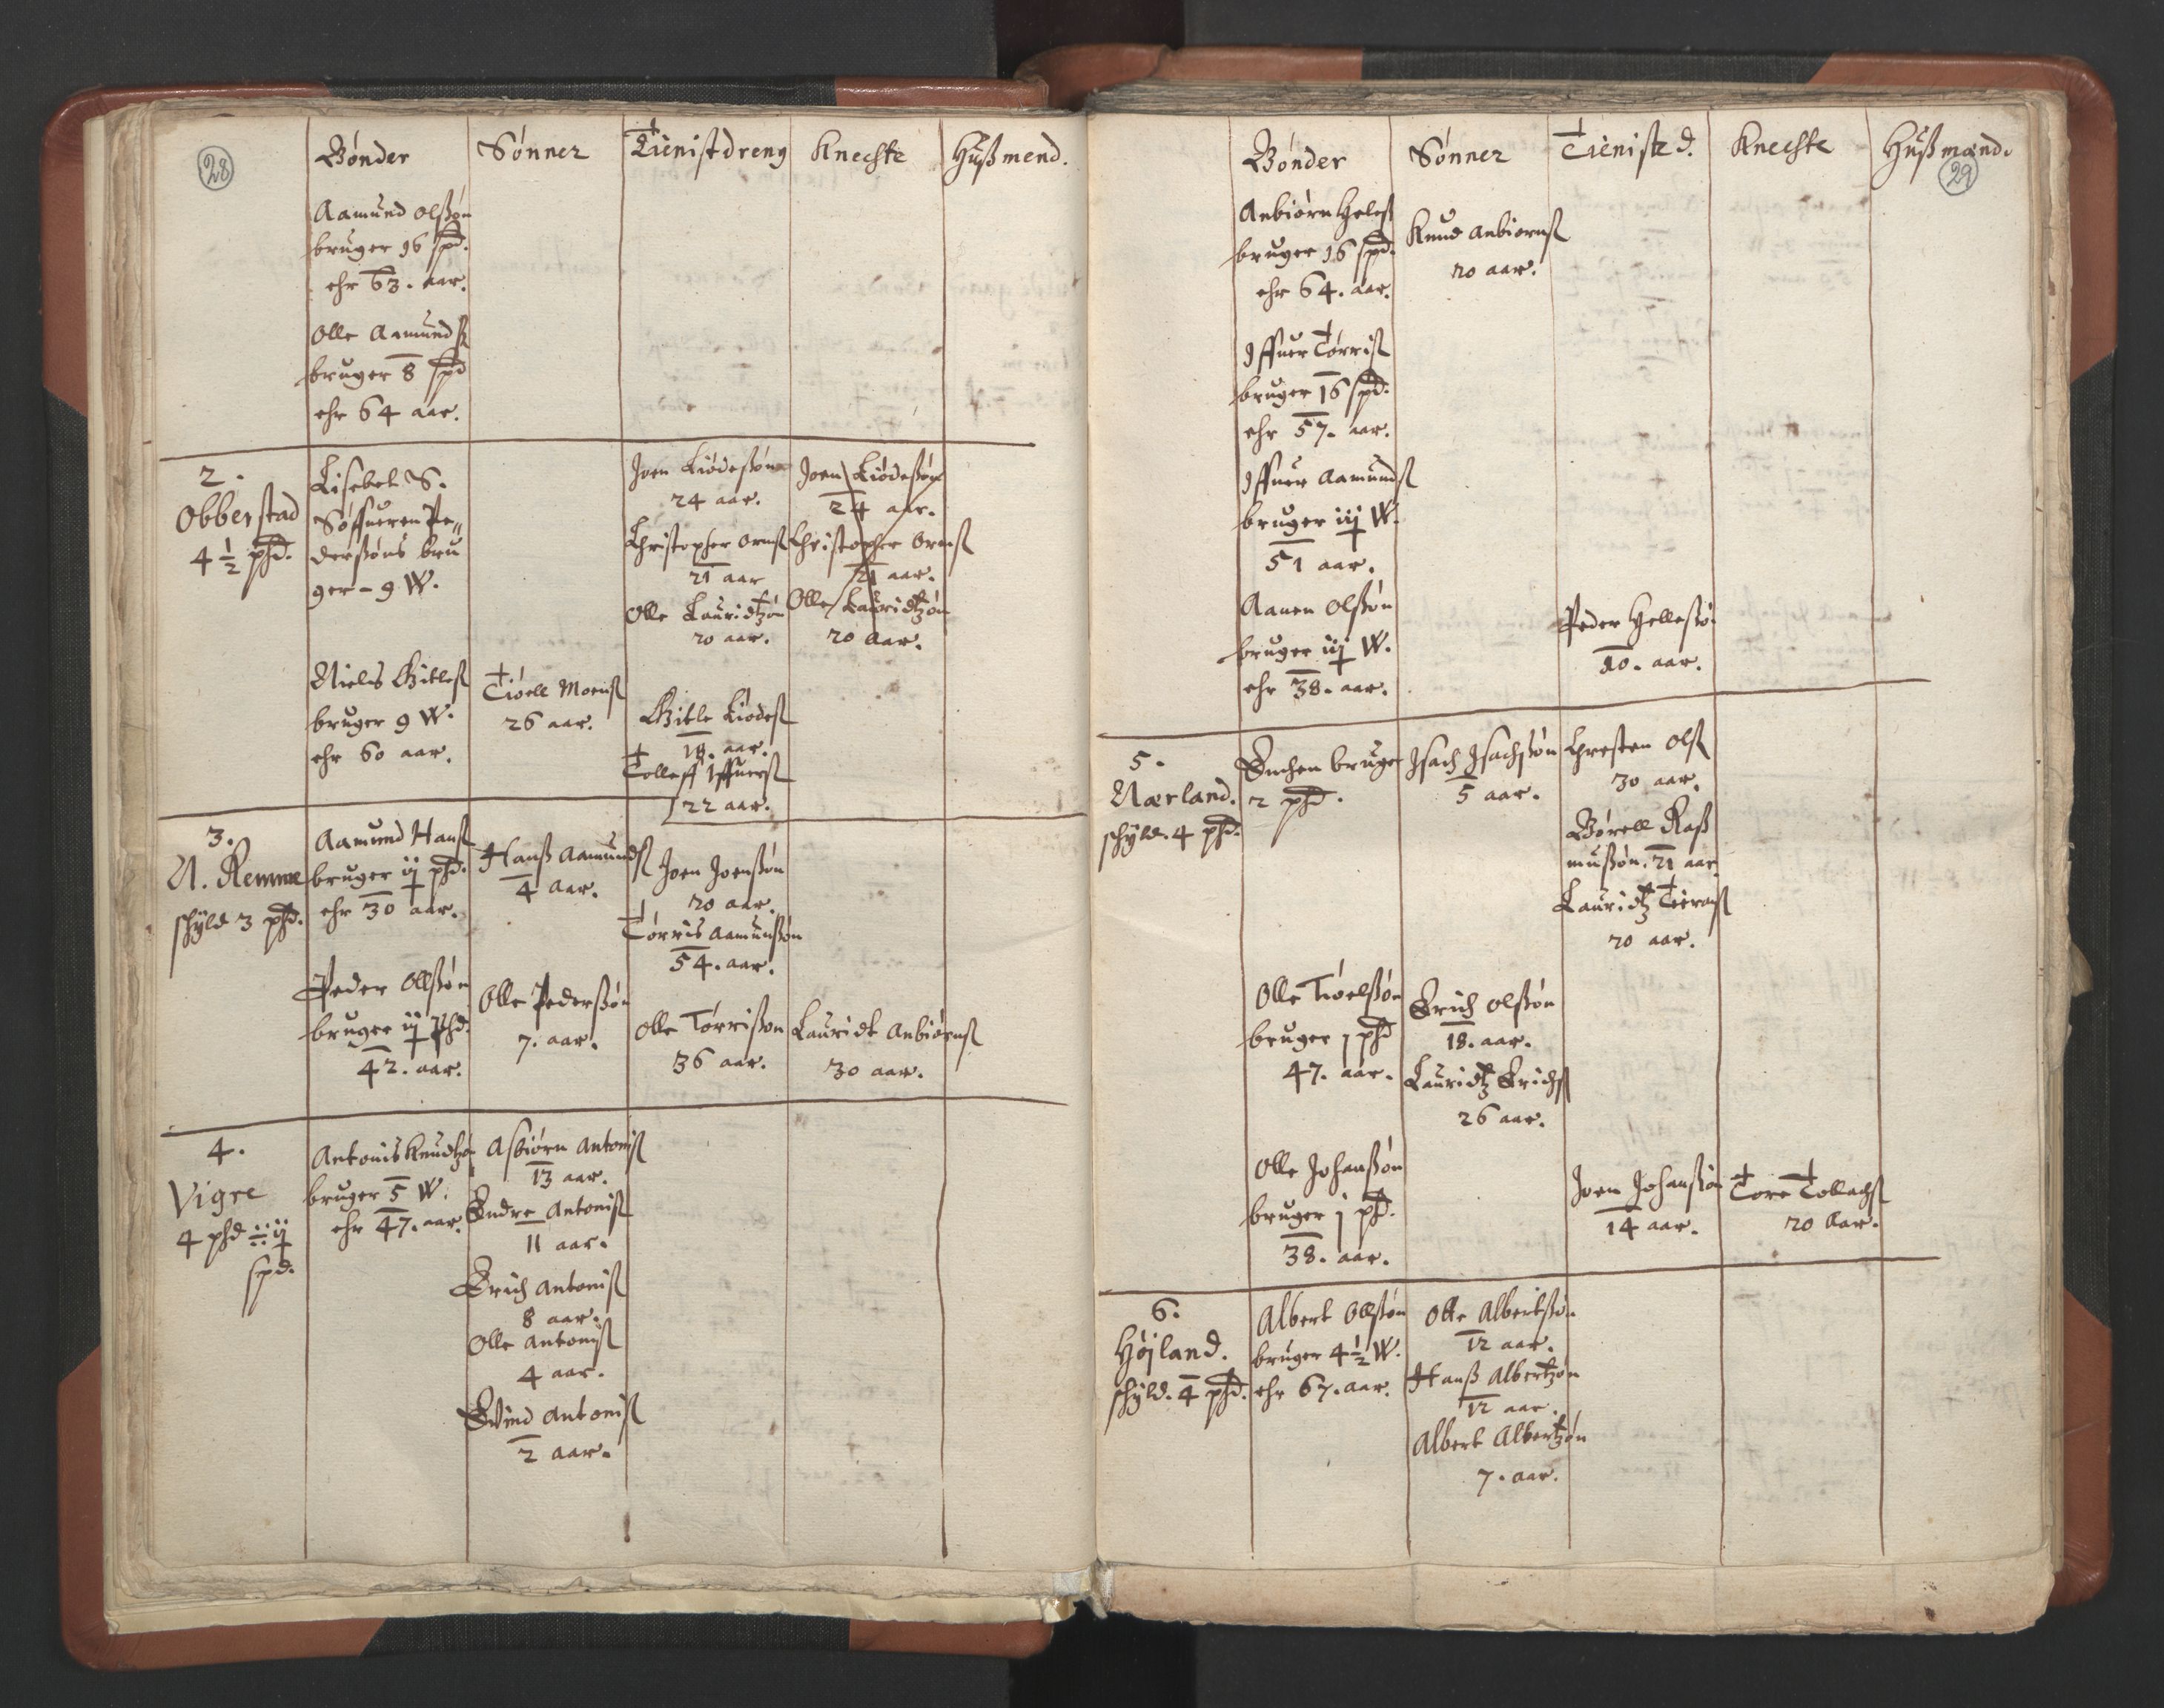 28
Bønder
Sønner
Tienistdreng
Knechte
Hußmend.
Aamund olßøn
bruger 16 spd.
ehr 63. aar.
Olle Aamundß
bruger 8 spd
ehr 64 aar.
2.
Obberstad
4 1/2 phd.
Lisebet S.
Søffueren Pe„
derßøns bru
ger – 9 W.
Joen Kiødeßøn
24 aar.
Christopher Ormß
21 aar
Olle Lauridtzøn
20 aar.
Joen Kiødeßøn
24 aar.
Christopher Ormß
21 aar.
Olle Lauridtzøn
20 aar.
Niels Gitleß
bruger 9 W.
ehr 60 aar.
Tiøell Moenß
26 aar.
Gitle Kiødeß
18. aar.
Tolleff Iffuerß
22 aar.
3.
N. Remme
schyld 3 phd.
Aamund Hanß
bruger ij phd.
ehr 30 aar.
Hanß Aamundß
4 aar.
Joen Joenßøn
20 aar.
Tørris Aamunßøn
54. aar.
Peder Ollßøn
bruger ij Phd.
42. aar.
Olle Pederßøn
7. aar.
Olle Tørrisøn
36 aar.
Lauridt Anbiørnß
30 aar.
4.
Vigre
4 phd ij
spd.
Antonis Knudtzøn
bruger 5 W.
ehr 47. aar.
Asbiørn Antoniß
13 aar.
Endre Antoniß
11 aar.
Erich Antoniß
8 aar.
Olle Antoniß
4 aar.
Evind Antoniß
2 aar.
Bønder
Sønner
Tieniste d.
Knechte
Hußmænd.
29
Anbiørn Heleß
bruger 16 spd.
ehr 64. aar.
Knud Anbiørnß
20 aar.
Iffuer Tørriß
bruger 16 spd.
ehr 57. aar.
Iffuer Aamundß
bruger iij W.
51 aar.
Aanen Olßøn
bruger iij W.
ehr 38. aar.
Peder Helleßøn
10. aar.
5.
Nærland.
schyld. 4 phd.
Enchen bruger
2 phd.
Isach Isachßøn
5 aar.
Chresten Olß
30 aar.
Børell Raß
mußøn. 21 aar
Lauridtz
20 aar.
Olle Tiøelßøn
bruger j phd
47. aar.
Erich Olßøn
18. aar.
Lauridtz Erichß
26 aar.
Olle Johanßøn
bruger j phd.
38. aar.
Joen Johanßøn
14 aar.
Tore Tollachß
20 Aar.
6.
Højland.
schyld. 4 phd.
Albert Ollßøn
bruger 4 1/2 W.
ehr 67. aar.
Otte Albertßøn
12 aar.
Hanß Albertzøn
12 aar.
Albert Albertzøn
7. aar.